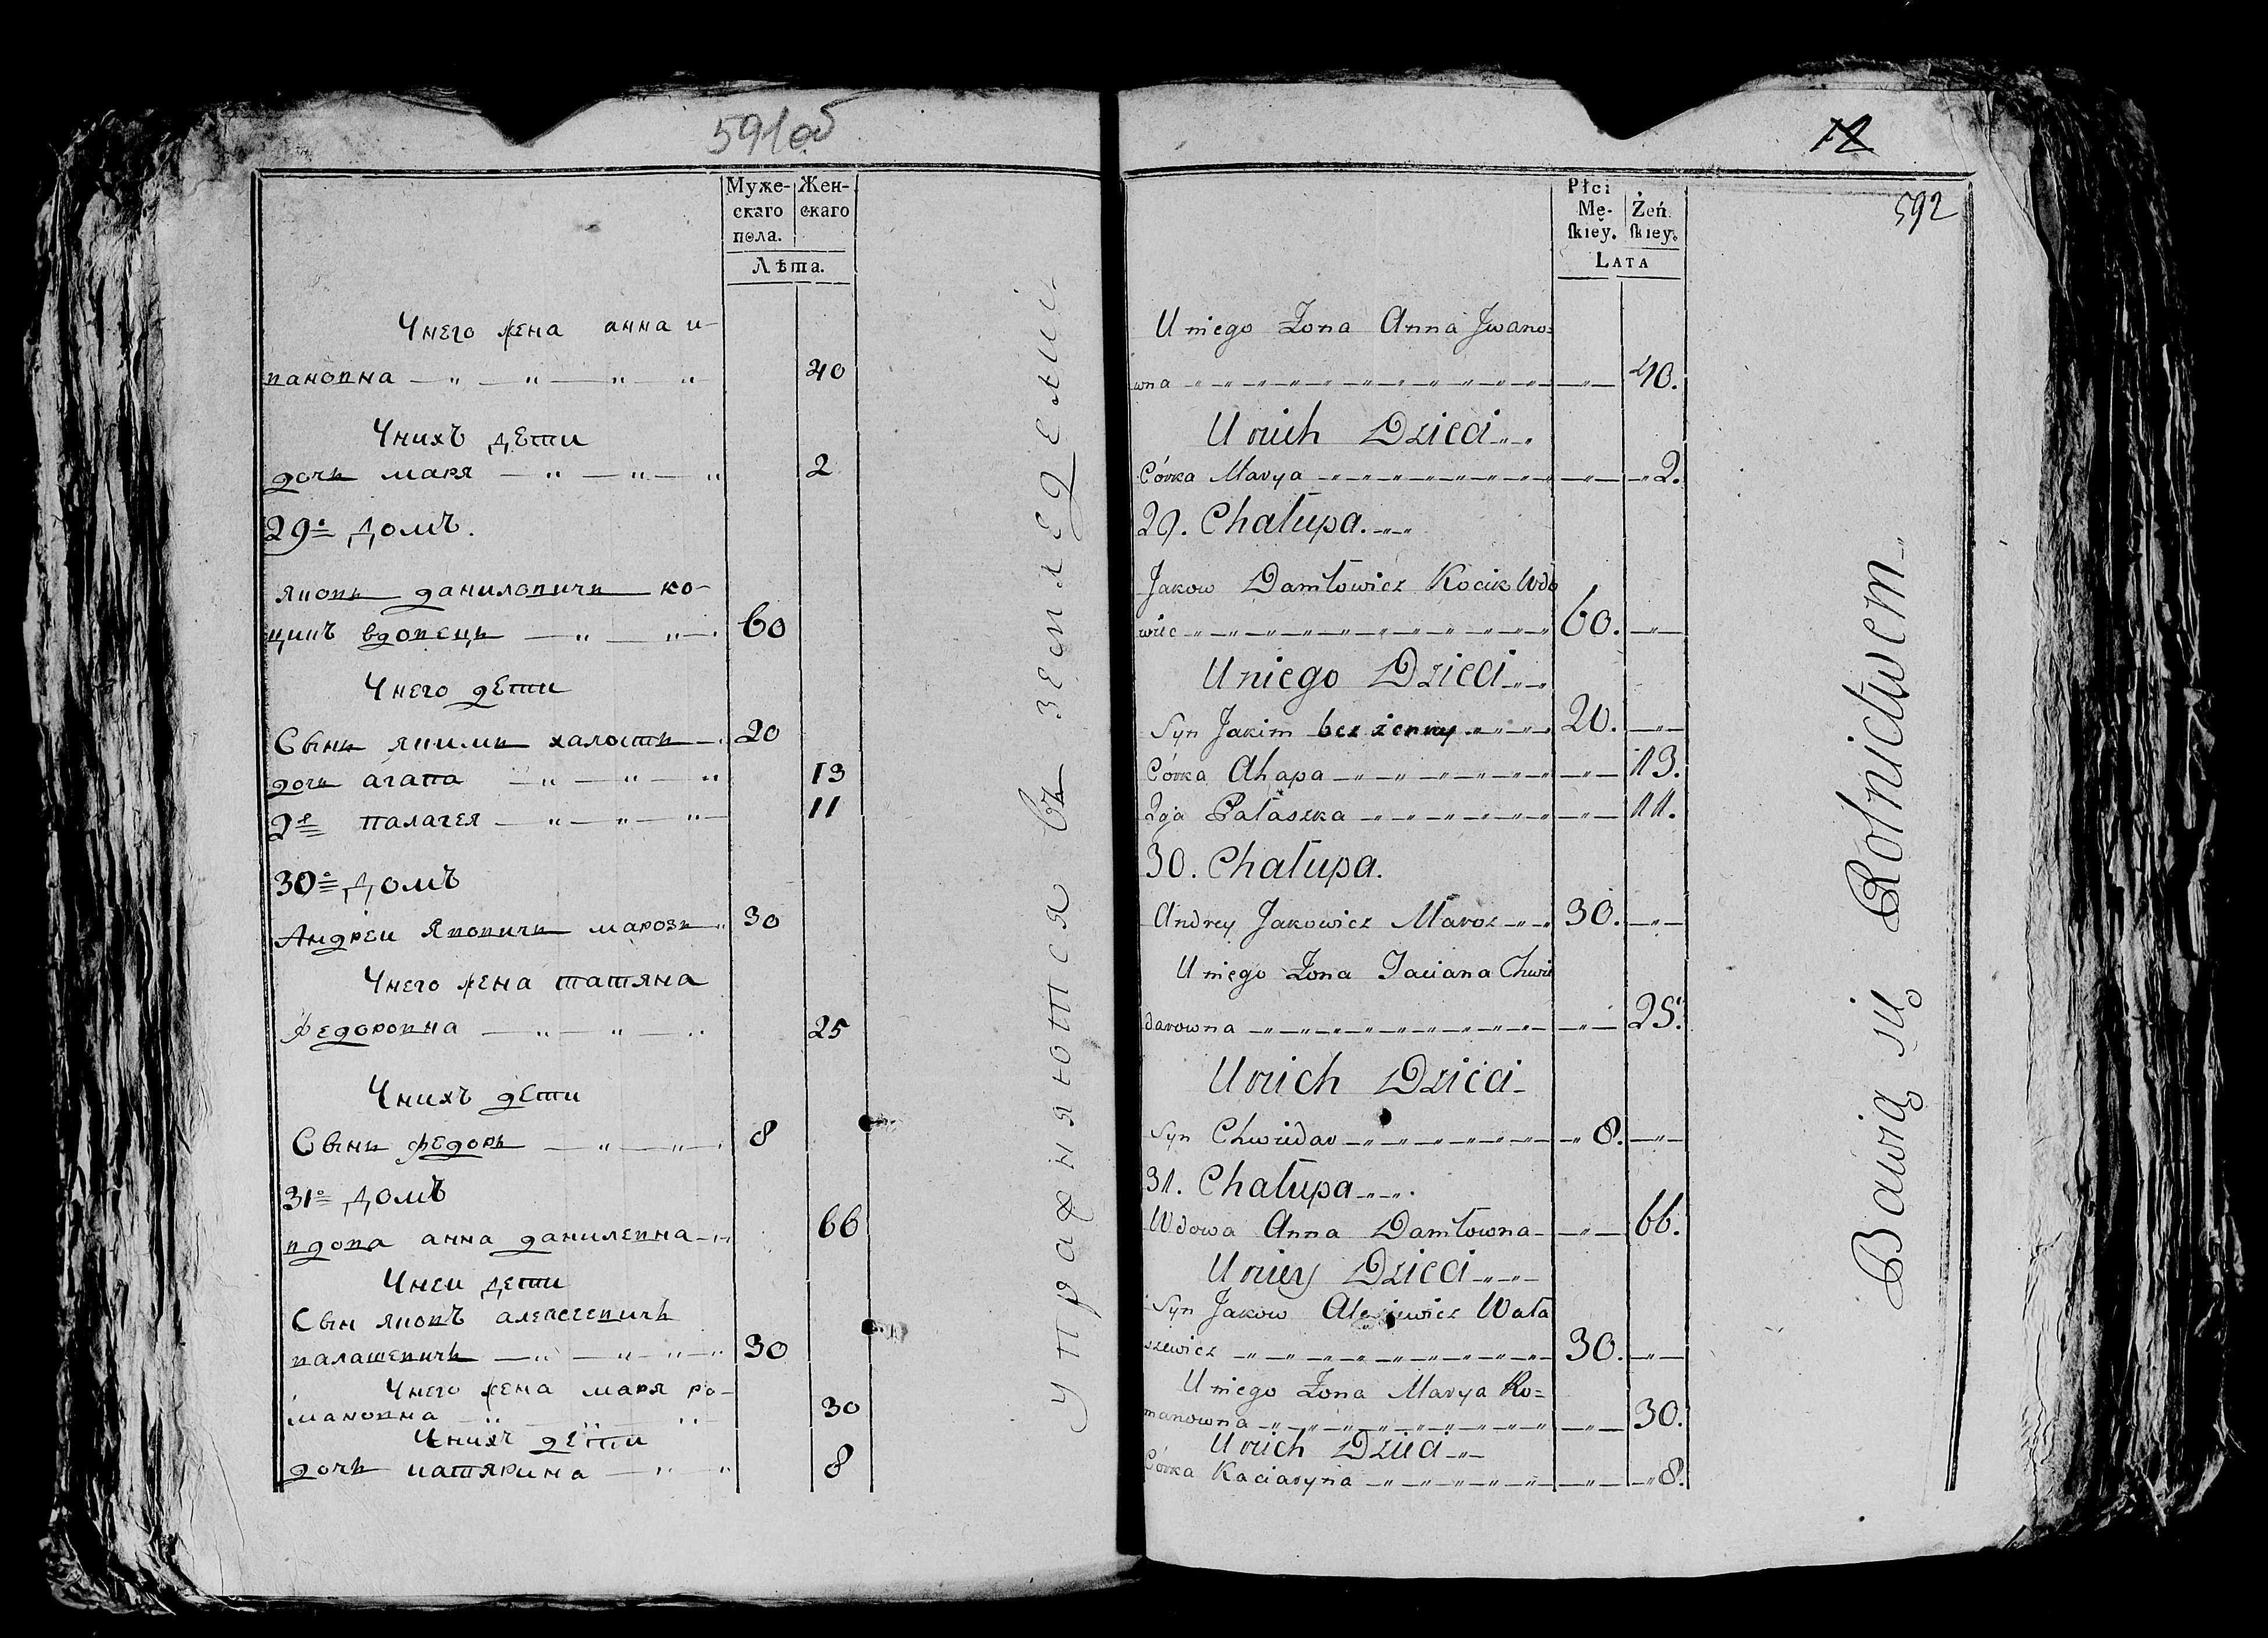 591об
Муже- Жен-
скаго скаго
пола.
Лѣта.
Унего жена анна и-
вановна 40
Унихъ дети
дочь маря 2
29е домъ.
яковъ даниловичъ ко-
цикъ вдовецъ 60
Унего дети
Сынъ якимъ халости 20
дочь агапа 13
2я палагея 11
30е домъ
Андреи Яковичъ марозъ 30
Унего жена татяна
федоровна 25
Унихъ дети
Сынъ федоръ 8
31е домъ
вдова анна данилевна 66
Унеи дети
Сын яковъ алексеевичъ
валашевичъ 30
Унего жена маря ро-
мановна 30
Унихъ дети
дочь катярина 8
упражняются въ земледелии
12
592
Płci
Mę- Żeń
skiey. skiey.
LATA
U niego Żona Anna Jwano=
wna 40.
U nich Dzieci
Córka Marya 2.
29. Chałupa.
Jakow Daniłowicz Kocik Wdo
wiec 60.
U niego Dzieci
Syn Jakim bezżenny 20.
Córka Ahapa 13.
2ga Pałaszka 11.
30. Chałupa.
Andrey Jakowicz Maroz 30.
U niego Żona Taciana Chwie
darowna 25.
U nich Dzieci
Syn Chwiedar 8.
31. Chałupa
Wdowa Anna Daniłowna 66.
U niey Dzieci
Syn Jakow Alexiewicz Wała
szewicz 30.
U niego Żona Marya Ro=
manowna 30.
U nich Dzieci
Córka Kaciaryna 8.
Bawią się Rolnictwem